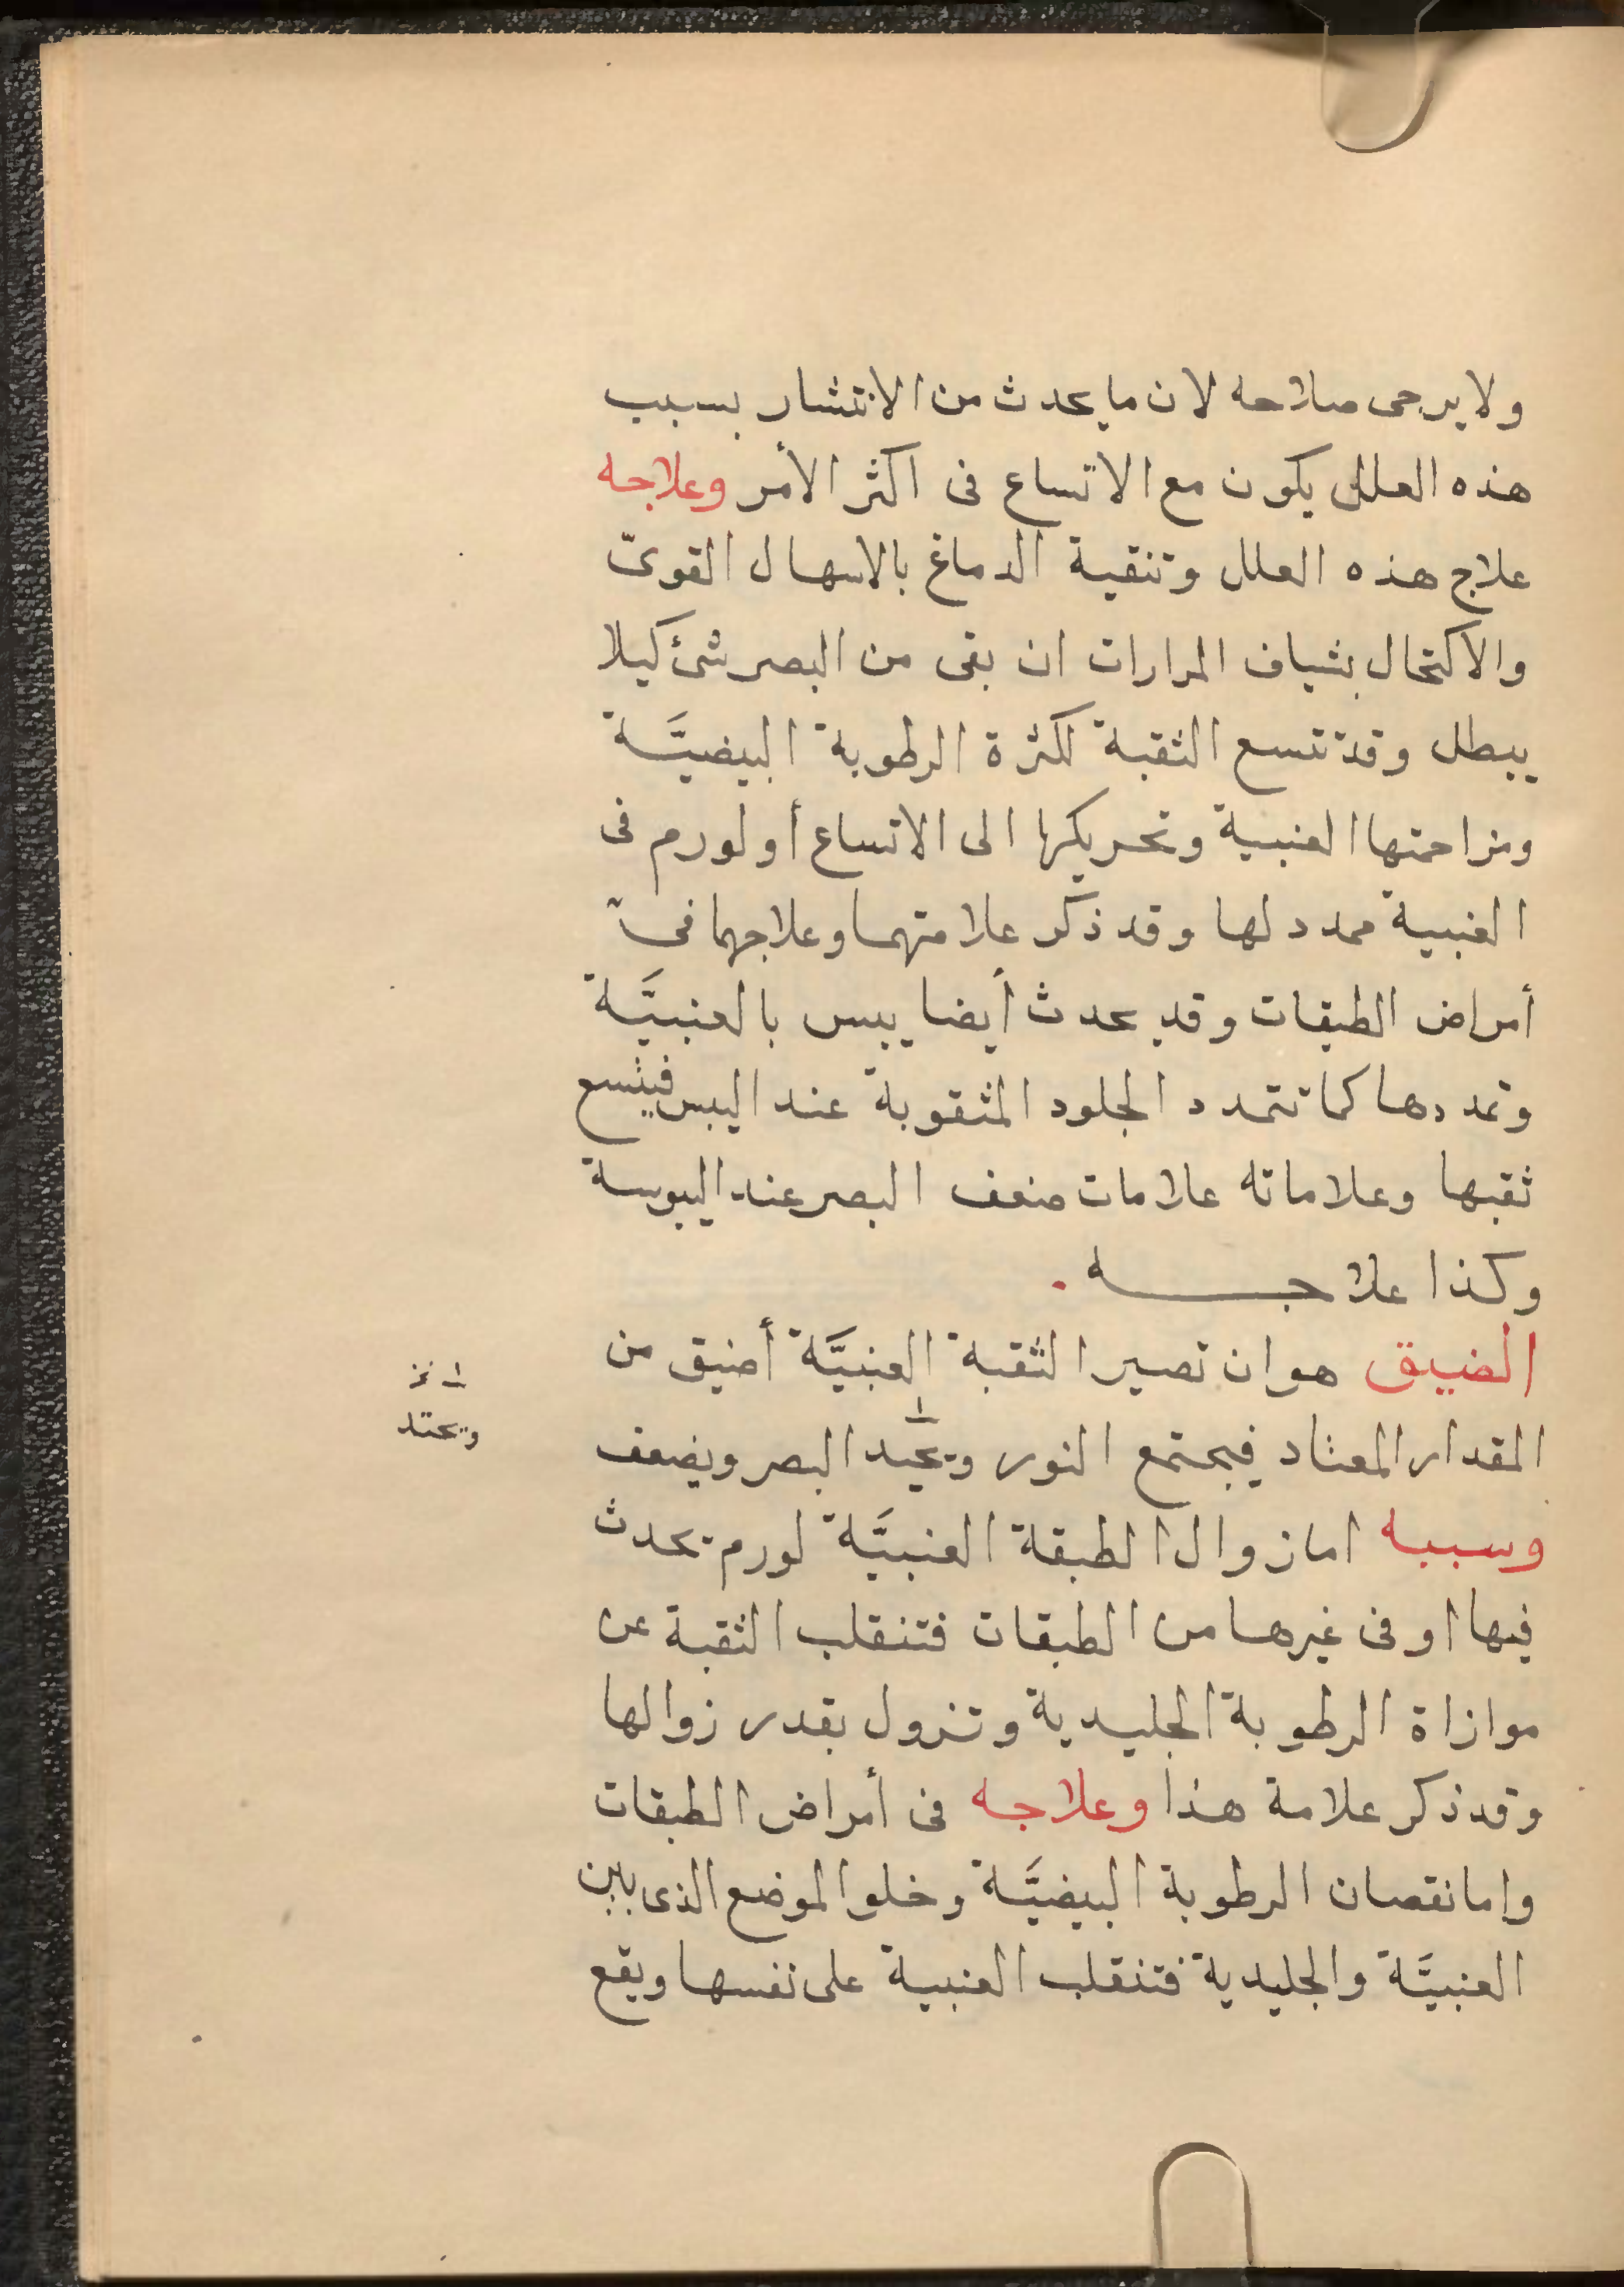 ولا يرجى صلاحه لان ما يحدث من الانتشار بسبب
هذه العلل يكون مع الاتساع فى اكثر الأمر وعلاجه
علاج هذه العلل وتنقية الدماغ بالاسهال القوىّ
والاكتحال بشياف المرارات ان بقى من البصر شئ كيلا
يبطل وقد تتسع الثقبة لكثرة الرطوبة البيضيَّة
ومزاحمتها العنبية وتحريكها الى الاتساع أو لورم فى
العنبية ممدد لها وقد ذكر علامتهما وعلاجهما فى
أمراض الطبقات وقد يحدث أيضا يبس بالعنبيَّة
وتمددها كما تتمدد الجلود المثقوبة عند اليبس فيتسع
ثقبها وعلاماته علامات ضعف البصر عند اليبوسة
وكذا علاجه.
الضيق هو ان تصير الثقبة العنبيَّة أضيق من
المقدار المعتاد فيجتمع النور ويحيد البصر ويضعف
وسببه اما زوال الطبقة العنبيَّة لورم يحدث
فيها او فى غيرها من الطبقات فتنقلب الثقبة عن
موازاة الرطوبة الجليدية وتزول بقدر زوالها
وقد ذكر علامة هذا وعلاجه فى أمراض الطبقات
وإما نقصان الرطوبة البيضيَّة وخلو الموضع الذى بين
العنبيَّة والجليدية فتنقلب العنبية على نفسها ويقع
١ نخ
ويحتد